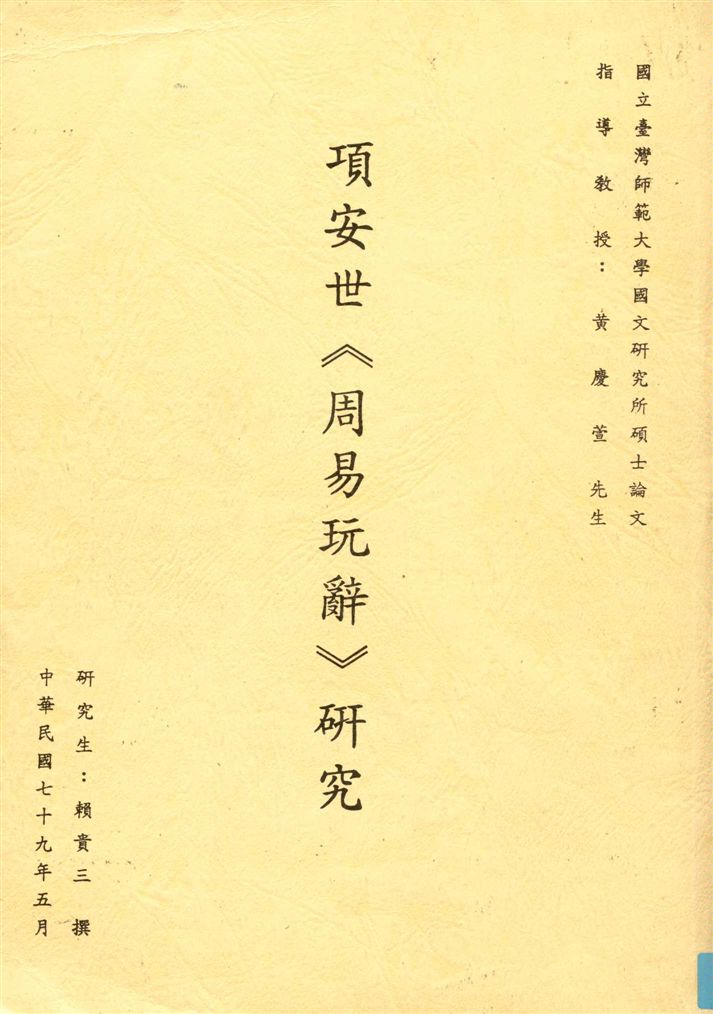 國立臺灣師範大學國文研究所碩士論文
指導教授：黃慶萱先生
項安世《周易玩辭》研究
研究生：賴貴三 撰
中華民國七十九年五月